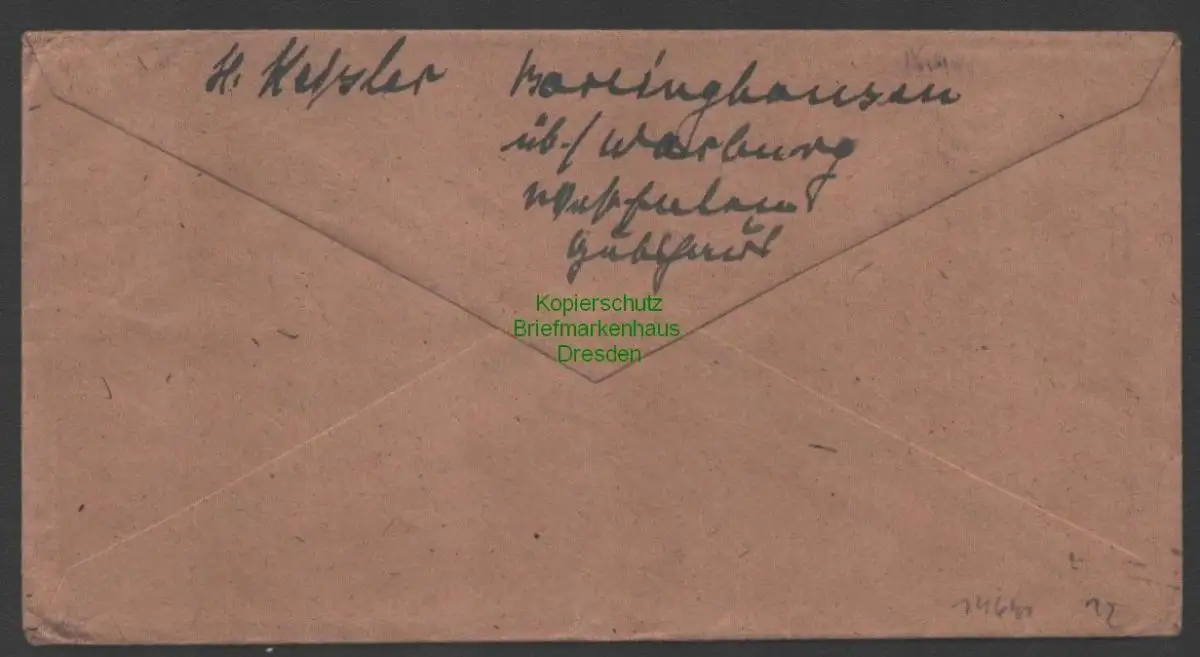 H. Keßler Borlinghausen
üb./ Warburg
Westfalen
Kopierschutz
Briefmarkenhaus
Dresden